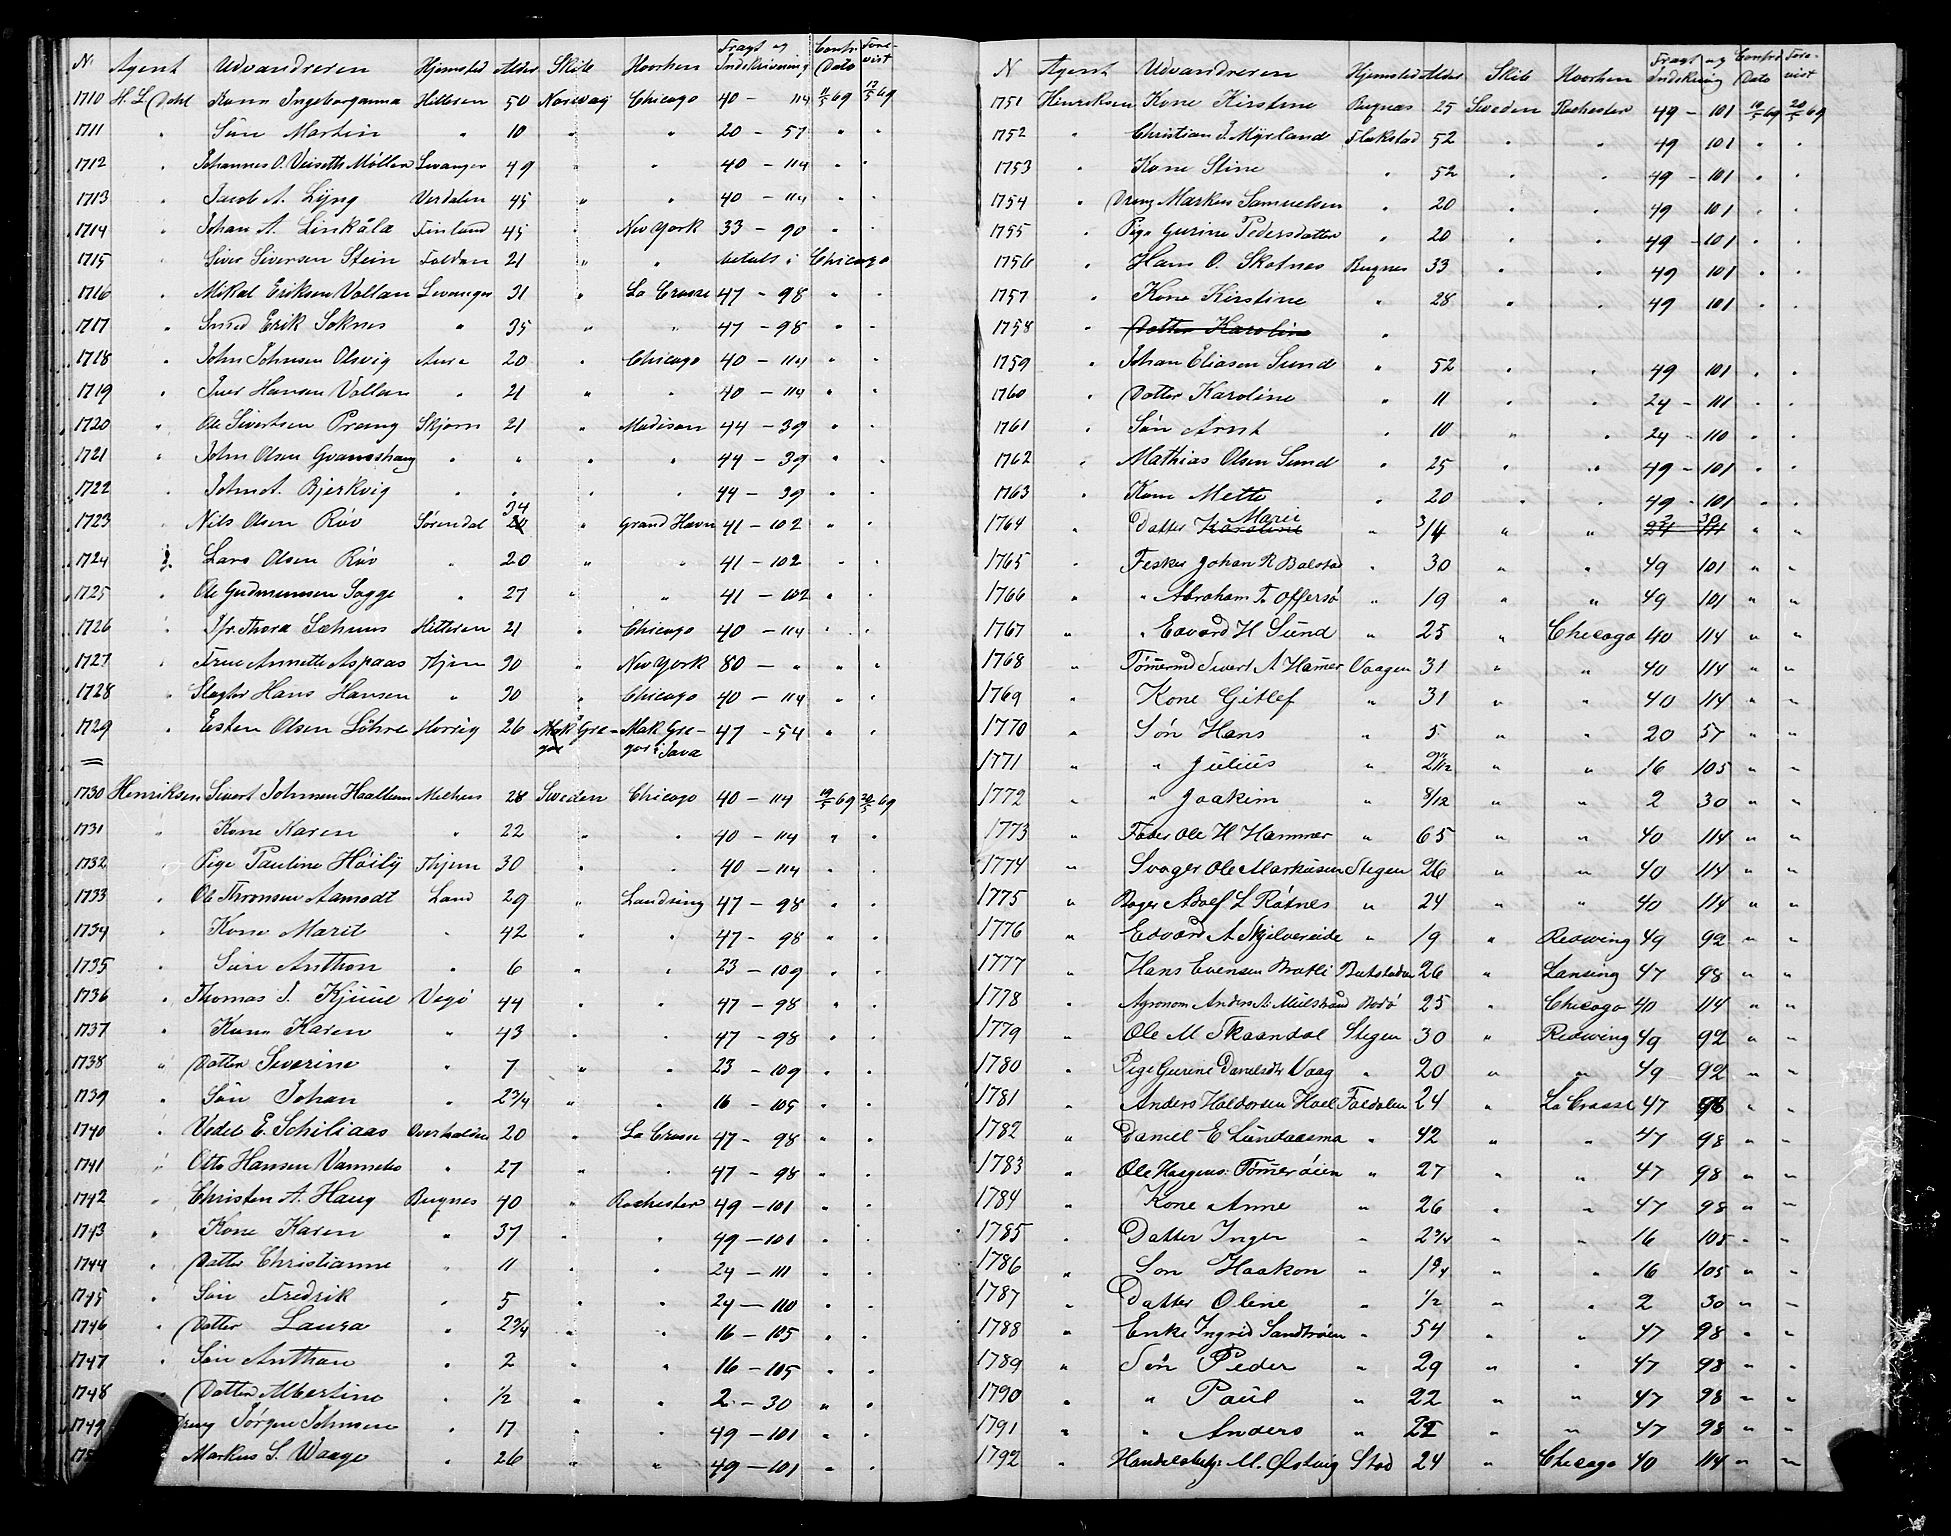 N. Agent Udvandreren Hjemsted Alder Skib Hvorhen Fragt og Indskrivning Contr. Dato Forevist
1710 H. L. Dahl Kone Ingeborganna Hitteren 50 Norway Chicago 40 - 114 11/5 69 12/5 69
1711 " Søn Martin " 10 " " 20 - 57 " "
1712 " Johannes O. Møller Levanger 49 " " 40 - 114 " "
1713 " Jacob A. Lyng Verdalen 45 " " 40 - 114 " "
1714 " Johan A. Linkåla Finland 45 " New York 33 - 90 " "
1715 " Siver Siversen Stein Foldan 21 " " betalt i Chicago
1716 " Mikal Eriksen Vollan Levanger 31 " La Crosse 47 - 98 " "
1717 " Smed Erik Soknes " 35 " " 47 - 98 " "
1718 " John Johnsen Olsvig Aure 20 " Chicago 40 - 114 " "
1719 " Iver Hansen Vollan " 21 " " 40 - 114 " "
1720 " Ole Sivertsen Prang Skjørn 21 " Madison 44 - 39 " "
1721 " John Olsen " " " " 44 - 39 " "
1722 " John A. Bjerkvig " " " " 44 - 39
1723 " Nils Olsen Røv Sørendal 34 " Grand Haven 41 - 102 " "
1724 " Lars Olsen Røv " 20 " " 41 - 102 " "
1725 " Ole Gudmunsen Sogge " 27 " " 41 - 102 " "
1726 " Jfr. Thora Hitteren 21 " Chicago 40 - 114 " "
1727 " Frue Annette Aspaas Thjem 30 New York 80 - " " "
1728 " Slagter Hans Hansen " 30 " Chicago 40 - 114 " "
1729 " Esten Olsen Løhre Horrig 26 Mak Gregor Mak Gregor i Java 47 - 54 " "
1730 Henriksen Sivert Johnsen Melhus 28 Sweden Chicago 40 - 114 19/5 69 20/5 69
1731 " Kone Karen " 22 " " 40 - 114 " "
1732 " Pige Pauline Høily Thjem 30 " 40 - 114
1733 " Ole Thronsen Aamodt Land 29 " Landsing 47 - 98 " "
1734 " Kone Marit " 42 " " 47 - 98 " "
1735 " Søn Anthon " 6 " " 23 - 109 " "
1736 " Thomas J. Kjuul Vegø 44 " " 47 - 98 " "
1737 " Kone Karen " 43 " " 47 - 98 " "
1738 " Datter Severine " 7 " " 23 - 109 " "
1739 " Søn Johan " 2 3/4 " " 16 - 105 " "
1740 " Vedel E. Schiliaas Overhalden 20 " La Crosse 47 - 98 " "
1741 " Otto Hansen Vannebo " 27 " 47 - 98 " "
1742 " Christen A. Haug Bugnes 40 " Rochester 49 - 101 " "
1743 " Kone Karen " 37 " " 49 - 101 " "
1744 " Datter Christianne " 11 " " 24 - 111 " "
1745 " Søn Fredrik " 5 " " 24 - 110 " "
1746 " Datter Laura " 2 3/4 " " 16 - 105 " "
1747 " Søn Anthon " 2 " " 16 - 105 " "
1748 " Datter Albertine " 1/2 " " 2 - 30 " "
1749 Dreng Jørgen Johnsen " 17 " " 49 - 101 " "
Markus S. Waage " 26 " " 49 - 101 " "
N Agent Udvandreren Hjemsted Alder Skib Hvorhen Fragt og Indskrivning Contr. Dato Forevist
1751 Hinriksen Kone Kirstine Bugnæs 25 Sweden Rochester 49 - 101 19/5 69 20/5 69
1752 " Christian J. Myrland Flakstad 52 " " 49 101 " "
1753 " Kone Stine " 52 " " 49 - 101 " "
1754 " Dreng Markus Samuelsen " 20 " " 49 101 " "
1755 " Pige Gurine Pedersdatter " 20 " " 49 - 101 " "
1756 " Hans O. Skotnes Bugnes 33 " " 49 101 " "
1757 " Kone Kirstine " 28 " " 49 101 " "
1758 " Datter Karoline "
1759 " Johan Eliasen Sund " 52 " " 49 101 " "
1760 " Datter Karoline " 11 " " 24 - 111 " "
1761 " Søn Arnt " 10 " " 24 110 " "
1762 " Mathias Olsen Sund " 25 " " 49 - 101 " "
1763 " Kone Mette " 20 " " 49 - 101 " "
1764 " Datter Karoline Marie " 3/4 " " 2 30 " "
1765 " Fisker Johan R Balstad " 30 " " 49 101 " "
1766 " " Abraham T. Offersø " 19 " " 49 101 " "
1767 " " Edvard H Sund " 25 " Chicago 40 114 " "
1768 " Tømmermd Sivert A Hamer Vaagen 31 " " 40 114 " "
1769 " Kone Gitlef " 31 " " 40 114 " "
1770 " Søn Hans " 5 " " 20 57 " "
1771 " " Julius " " " 16 105 " "
1772 " " Joakim " 8/12 " " 2 30 " "
1773 " Fader Ole H Hammer " 65 " " 40 114 " "
1774 " Svoger Ole Markusen Stegen 26 " " 40 114 " "
1775 " Bager Adolf L Røtnes " 24 " " 40 114 " "
1776 " Edvard A Skjelvereide " 19 " Redwing 49 92 " "
1777 " Hans Evensen Bratli Beitstaden 26 " Lansing 47 98 " "
1778 " Agronom Anders A. Bodø 25 " Chicago 40 114 " "
1779 " Ole M Skaandal Stegen 30 " Redwing 49 92 " "
1780 " Pige Gurine Danielsdtr Vaag " 20 " " 49 92 " "
1781 " Anders Haldorsen Hoel Foldalen 24 " La Crosse 47 98 " "
1782 " Daniel E Lundaasmo " 42 " " 47 98 " "
1783 " Ole Haagens. Tømmerøien " 27 " " 47 98 " "
1784 " Kone Anne " 26 " " 47 98 " "
1785 " Datter Inger " 2 3/4 " " 16 105 " "
1786 " Søn Haakon " 1 3/4 " " 16 105 " "
1787 " Datter Oline " 1/2 " " 2 30 " "
1788 " Enke Ingrid Sandbrøien " 54 " " 47 98 " "
1789 " Søn Peder " 29 " " 47 98 " "
1790 " " Paul " 22 " " 47 98 " "
1791 " " Anders " " " 47 98 " "
1792 " Handelsbetj. M. Østvig Stod 24 " Chicago 40 114 " "